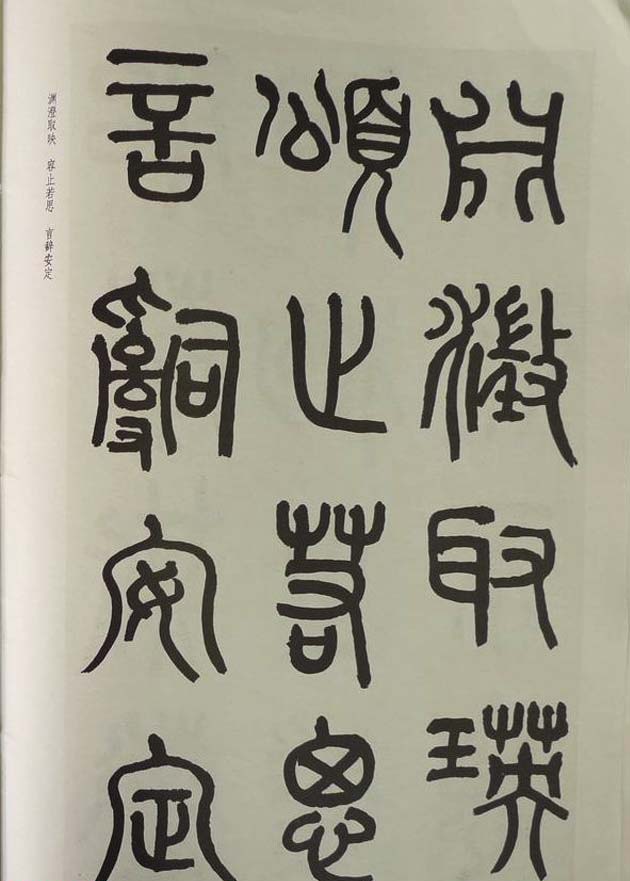 淵澂取瑛
頌止若思
言辭安定
淵澄取映　容止若思　言辭安定